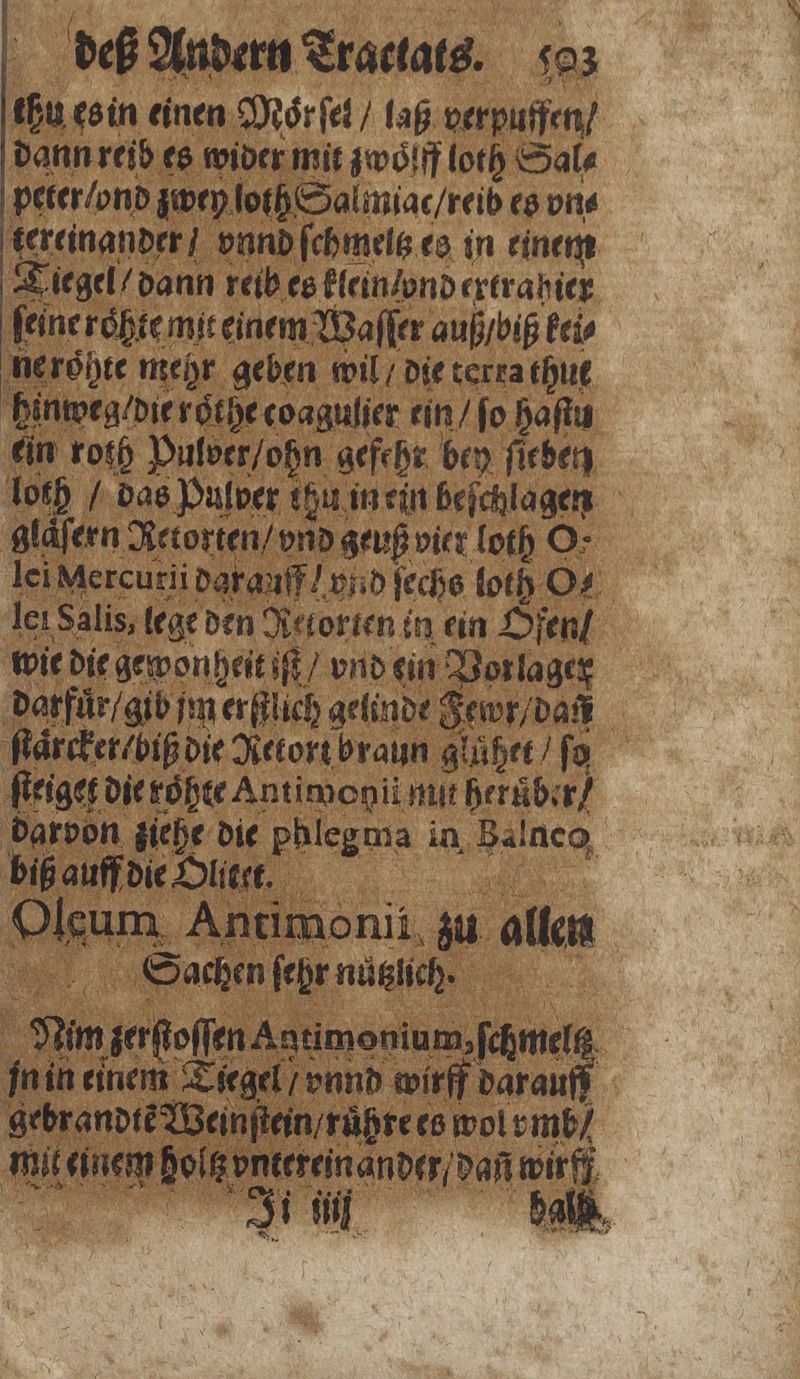 deß Andern Tractats. 503
thu es in einen Mörſel / laß verpuffen/
dann reib es wider mit zwölff loth Sal⸗
peter/vnd zwey loth Salmiac/reib es vn⸗
tereinander / vnnd ſchmeltz es in einem
Tiegel / dann reib es klein/vnd extrahier
ſeine röhte mit einem Waſſer auß/biß kei⸗
ne röhte mehr geben wil / die terra thue
hinweg/die röthe coagulier ein / ſo haſtu
ein roth Pulver/ohn gefehr bey ſieben
loth / das Pulver thu in ein beſchlagen
gläſern Retorten/vnd geuß vier loth O⸗
lei Mercurii darauff / vnd ſechs loth O⸗
lei Salis, lege den Retorten in ein Ofen/
wie die gewonheit iſt / vnd ein Vorlager
darfür/gib jm erſtlich gelinde Fewr/dañ
ſtärcker/biß die Retort braun glühet / ſo
ſteiget die röhte Antimonii mit herüber/
darvon ziehe die phlegma in Balneo
biß auff die Olitet.
Oleum Antimonii zu allen
Sachen ſehr nützlich.
Nim zerſtoſſen Antimonium, ſchmeltz
jn in einem Tiegel / vnnd wirff darauff
gebrandtẽ Weinſtein/rühre es wol vmb/
mit einem holtz vntereinander/dañ wirff
Ji iiij halb